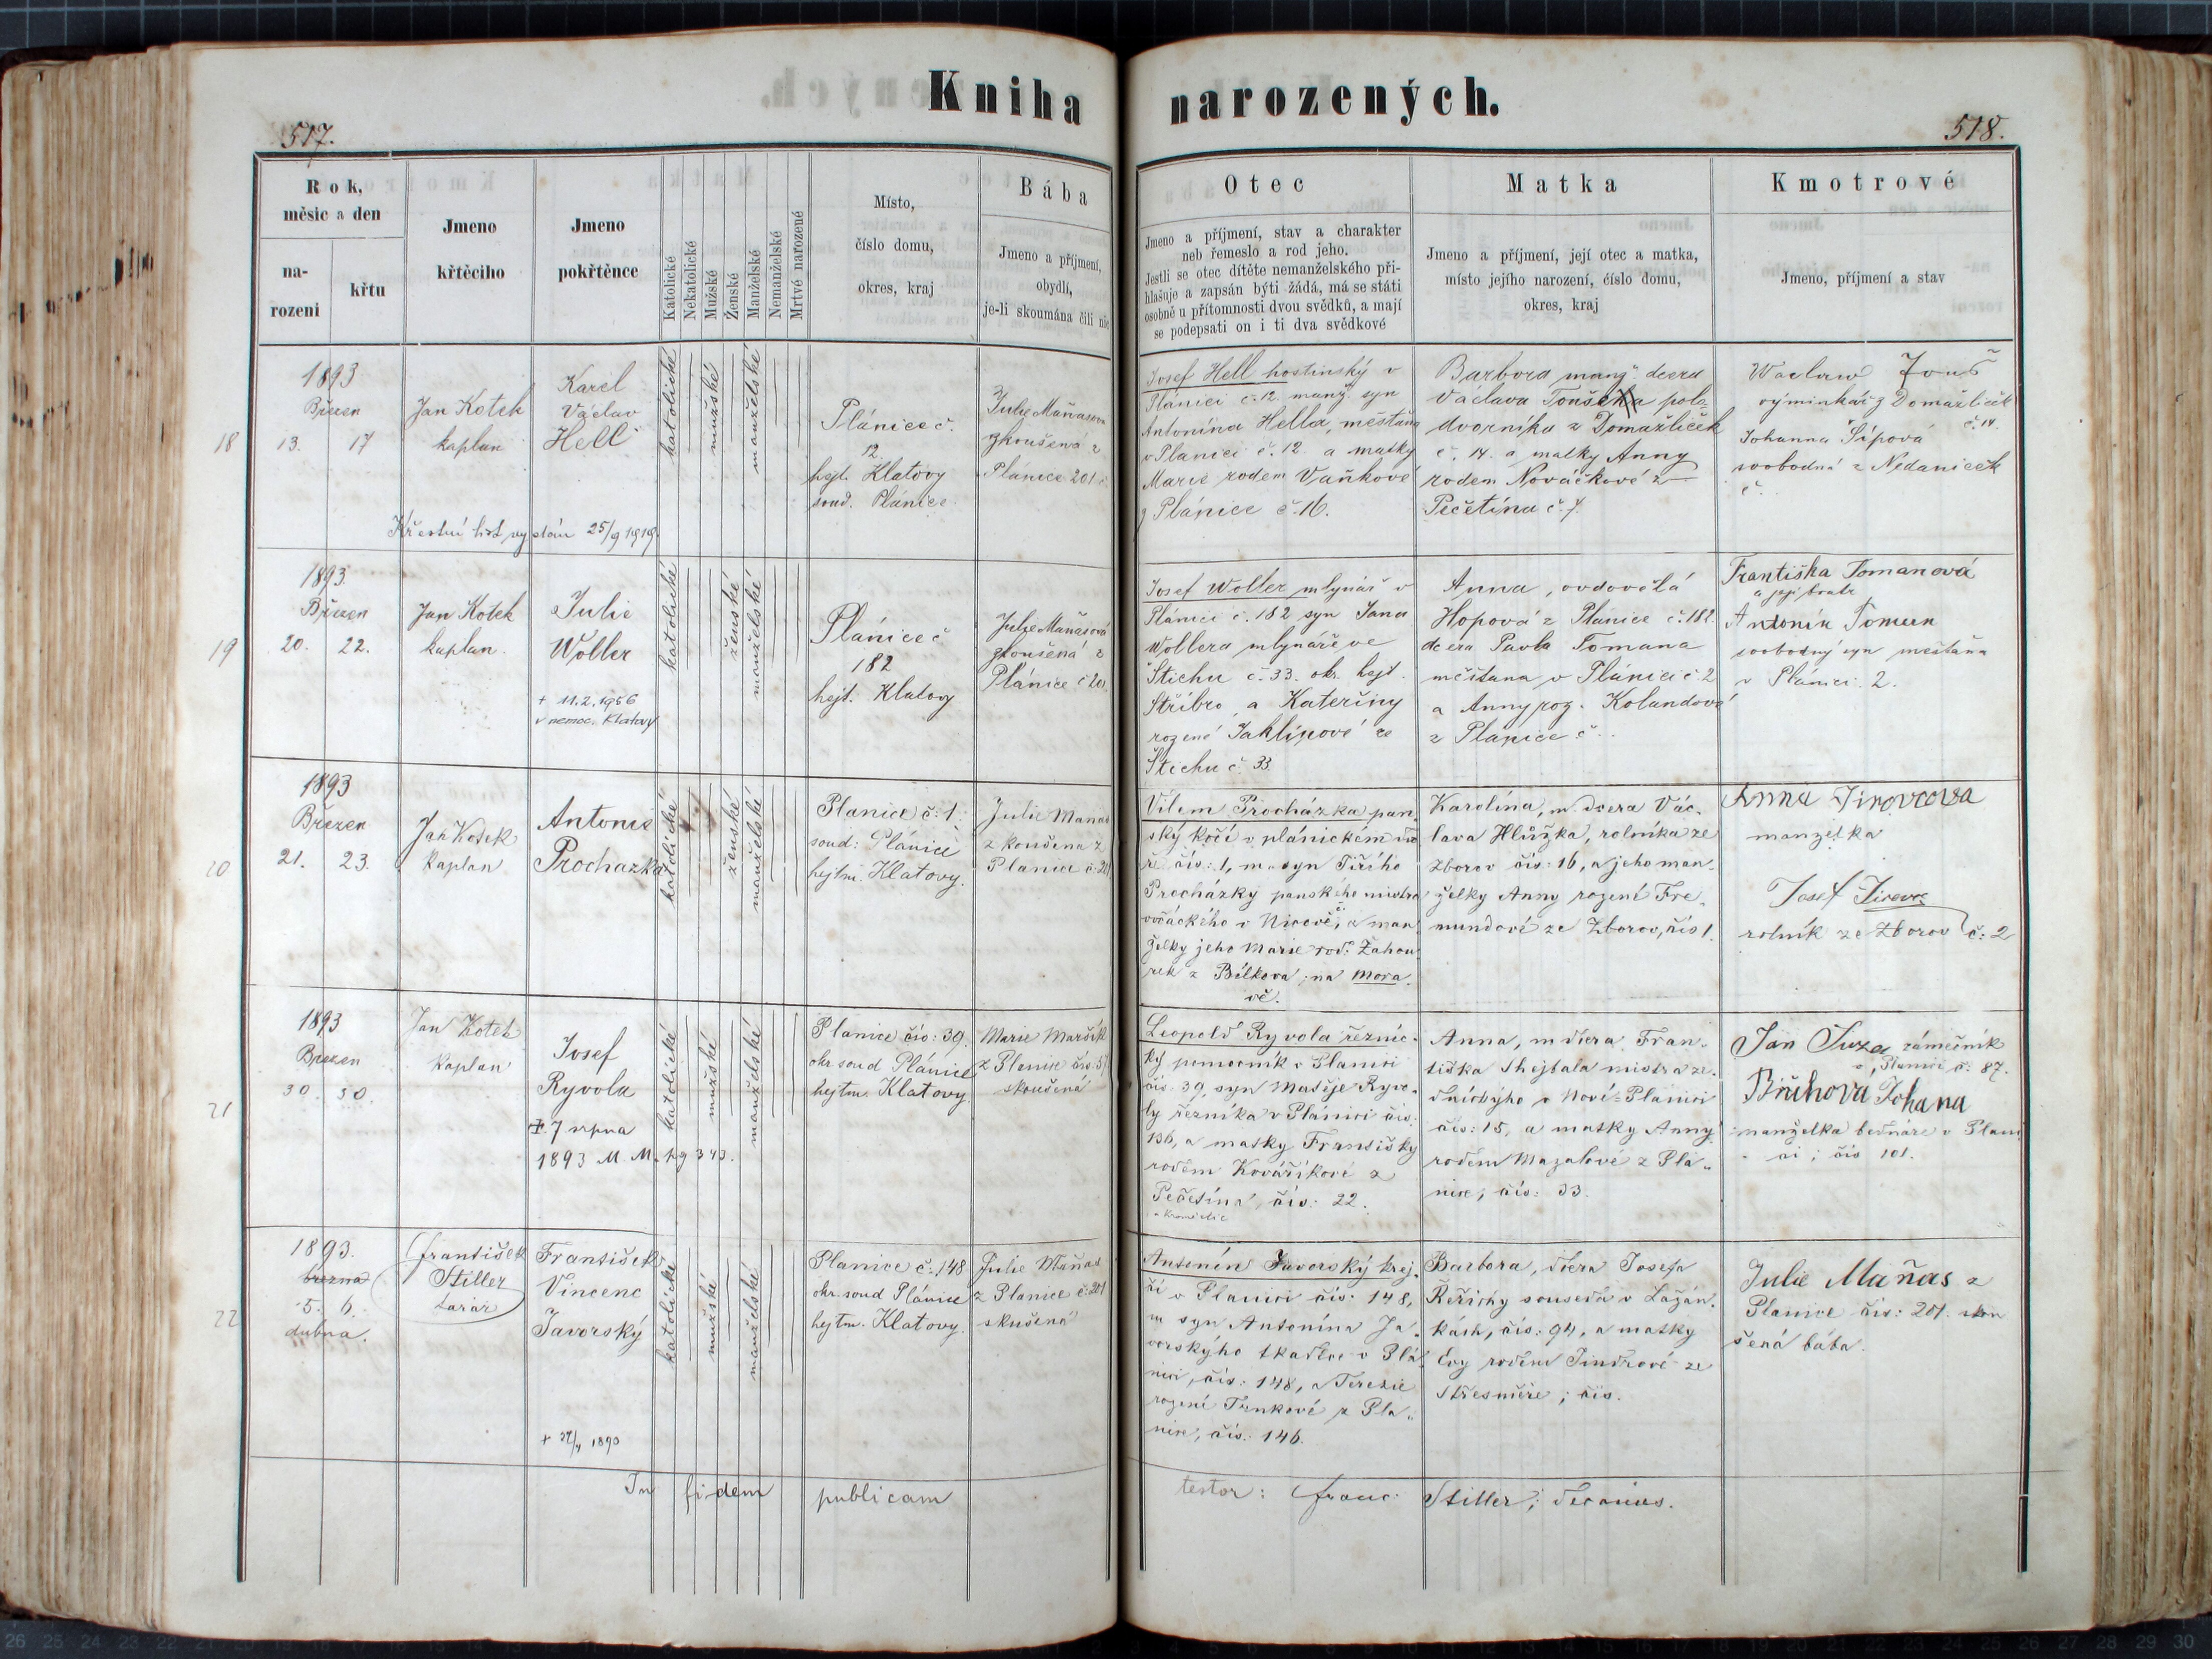 Kniha narozených.
517.
518.
Rok,
měsíc a den
na-
rozeni
křtu
Jmeno
křtěcího
Jmeno
pokřtěnce
Katolické
Nekatolické
Mužské
Ženské
Manželské
Nemanželské
Mrtvé narozené
Místo,
číslo domu,
okres, kraj
Bába
Jmeno a příjmení,
obydlí,
je-li skoumána čili nic
Otec
Jmeno a příjmení, stav a charakter
neb řemeslo a rod jeho.
Jestli se otec dítěte nemanželského při-
hlašuje a zapsán býti žádá, má se státi
osobně u přítomnosti dvou svědků, a mají
se podepsati on i ti dva svědkové
Matka
Jmeno a příjmení, její otec a matka,
místo jejího narození, číslo domu,
okres, kraj
Kmotrové
Jmeno, příjmení a stav
18
1893
Březen
13. 17
Jan Kotek
kaplan
Karel
Václav
Hell
katolické
mužské
manželské
Plánice č.
12.
hejt. Klatovy
soud. Plánice.
Julie Maňasová
zkoušená z
Plánice 201
Křestní list vydán 25/9 1919.
Josef Hell hostinský v
Plánici č. 12. manž. syn
Antonína Hella, měšťana
v Plánici č. 12 a matky
Marie rodem Vaňkové
z Plánice č. 16.
Barbora manž. dcera
Václava Touše polo-
dvorníka z Domažliček
č. 14. a matky Anny
rodem Nováčkové z
Pečetína č. 7.
Waclaw Touš
výminkář z Domažliček
č. 14.
Johanna Šípová
svobodná z Nedaniček
č.
19
1893.
Březen
20. 22.
Jan Kotek
kaplan.
Julie
Woller
+ 11.2.1956
v nemoc. Klatovy
katolické
ženské
manželské
Plánice č
182
hejt. Klatovy
Julie Maňasová
zkoušená z
Plánice č 201
Josef Woller mlynář v
Plánici č. 182 syn Jana
Wollera mlynáře ve
Štichu č. 33. okr. hejt.
Stříbro a Kateřiny
rozené Jaklinové ze
Štichu č. 33.
Anna, ovdovělá
Hopová z Plánice č. 182.
dcera Pavla Tomana
měšťana v Plánici č. 2
a Anny roz. Kolandové
z Plánice č..
Františka Tomanová
a její bratr
Antonín Toman
svobodný syn měšťana
v Plánici 2.
20
1893
Březen
21. 23.
Jan Kotek
kaplan
Antonie
Prochazka
katolické
ženské
manželské
Planice č: 1.
soud: Plánice
hejtm. Klatovy.
Julie Maňas
zkoušena z
Planice č: 201
Vilem Procházka pan-
ský kočí v plánickém dvo
ře čís: 1, m. syn Jiřího
Procházky panského mistra
ovčáckého v Nicově, č. a man-
želky jeho Marie rod. Zahou-
rek z Bílkova, na Mora-
vě.
Karolina, m. dcera Vác-
lava Hlůžka, rolníka ze
Zborov čís: 16, a jeho man-
želky Anny rozené Fre-
mundové ze Zborov, čís 1.
Anna Jirovcova
manželka
Josef Jirovec
rolník ze Zborov č: 2
21
1893
Březen
30. 30.
Jan Kotek
kaplan
Josef
Ryvola
+ 7 srpna
1893 M. M. hg 343.
katolické
mužské
manželské
Planice čís: 39.
okr. soud Plánice
hejtm. Klatovy.
Marie Maršík
z Planice čís. 57
skoušená
Leopold Ryvola řeznic-
ký pomocník v Planici
čís. 39, syn Matěje Ryvo-
ly řezníka v Plánici čís.
136, a matky Františky
rodem Kovaříkové z
Pečetína, čís: 22.
Anna, m. dcera Fran-
tiška Shejbala mistra ze-
dnického v Nové-Planici
čís: 15, a matky Anny
rodem Mazalové z Plá-
nice, čís: 33.
Jan Suza zámečník
v Planici č: 87.
Brůhova Johana
manželka bednáře v Plani-
ci; čís 101.
22
1893.
března
5. 6.
dubna.
František
Stiller
farář
František
Vincenc
Javorský
+ 27/4 1890
katolické
mužské
manželské
Planice č: 148
okr. soud Plánice
hejtm. Klatovy.
Julie Maňas
z Planice č: 201
skušená
Antonín Javorský krej-
čí v Planici čís: 148,
m syn Antonína Ja-
vorského tkadlce v Plá-
nici, čís: 148, a Terezie
rozené Trnkové z Pla-
nice, čís: 146.
Barbora, dcera Josefa
Řeřichy souseda v Lažán-
kách, čís: 94, a matky
Evy rodem Jindrové ze
Střesměře; čís.
Julie Maňas z
Planice čís: 201. skou
šená bába.
In fidem publicam testor: Franc. Stiller; decanus.